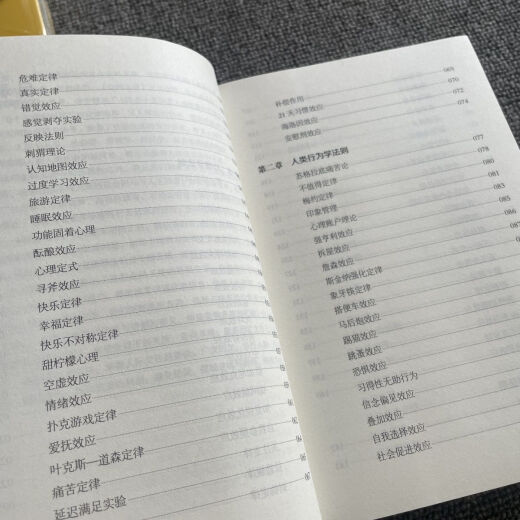 危难定律
真实定律
错觉效应
感觉剥夺实验
反映法则
刺猬理论
认知地图效应
过度学习效应
旅游定律
睡眠效应
功能固着心理
酝酿效应
心理定式
寻斧效应
快乐定律
幸福定律
快乐不对称定律
甜柠檬心理
空虚效应
情绪效应
扑克游戏定律
爱抚效应
叶克斯—道森定律
痛苦定律
延迟满足实验
补偿作用 069
21天习惯效应 070
海洛因效应 072
安慰剂效应 074
第二章 人类行为学法则 077
苏格拉底痛苦论 078
不值得定律 080
梅约定律 081
印象管理 083
心理账户理论 085
强亨利效应 086
拆屋效应 087
詹森效应
斯金纳强化定律
象牙筷定律
搭便车效应
马后炮效应
踢猫效应
跳蚤效应
恐惧效应
习得性无助行为
信念偏见效应
叠加效应
自我选择效应
社会促进效应